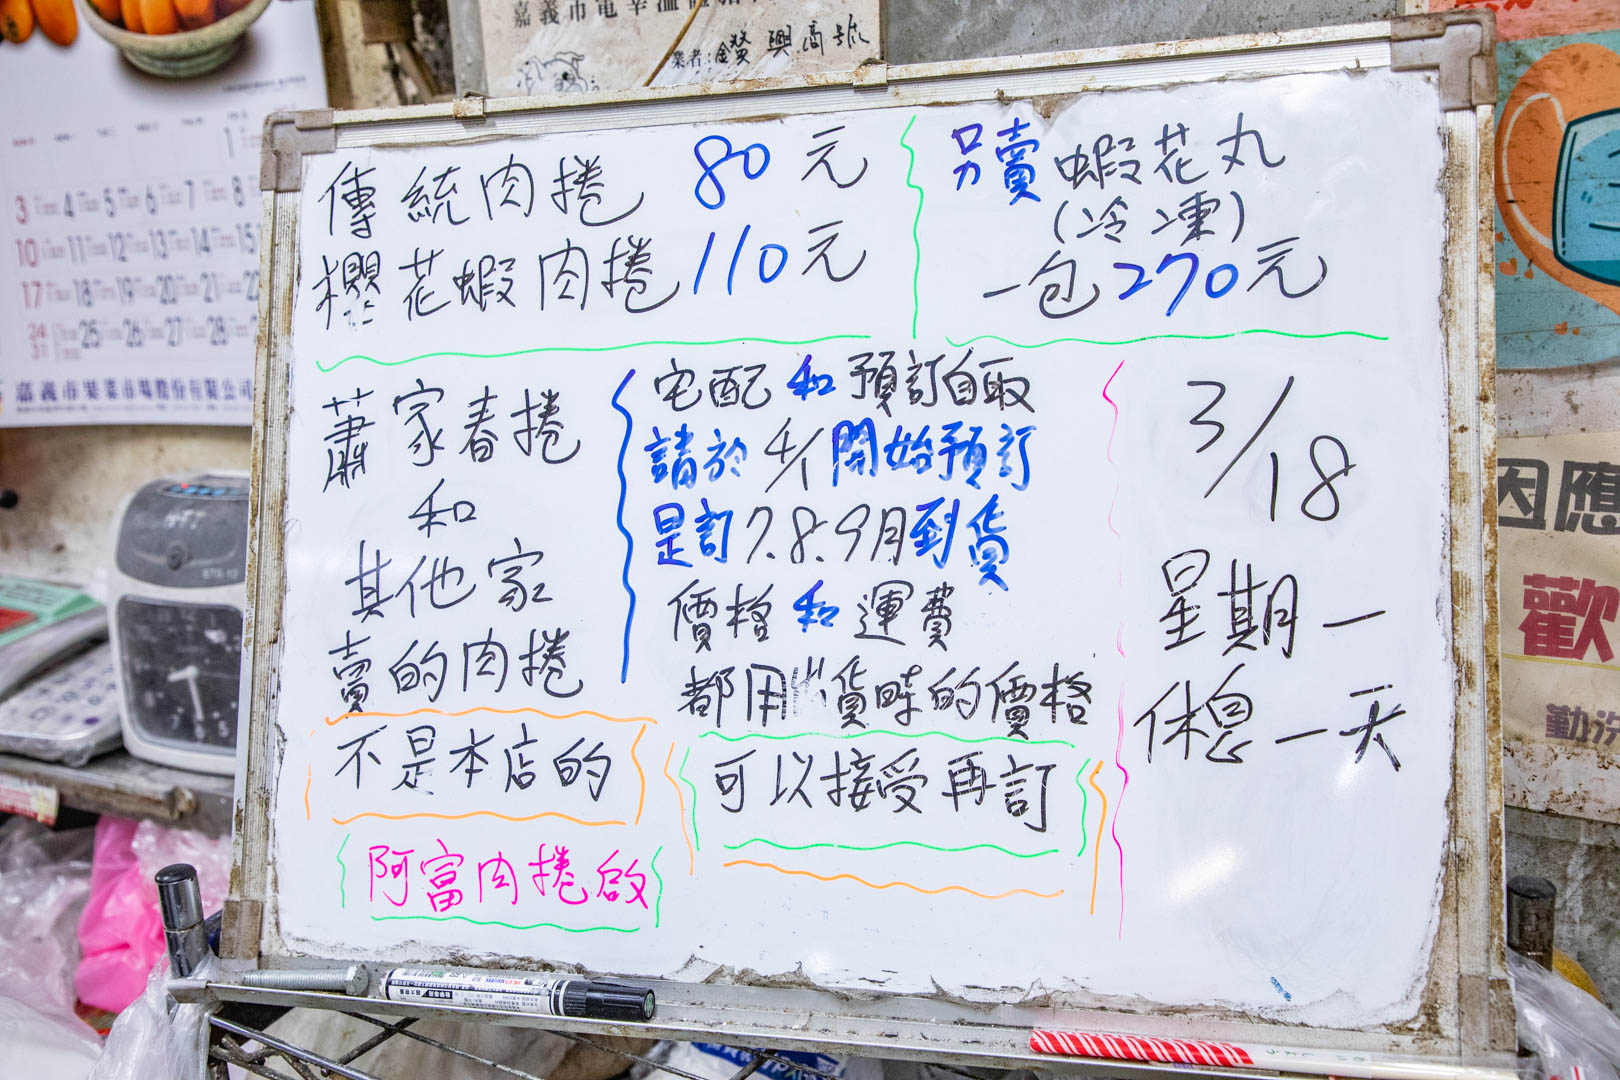 傳統肉捲 80元
櫻花蝦肉捲 110元
另賣蝦花丸
(冷凍)
一包270元
蕭家春捲
和
其他家
賣的肉捲
不是本店的
阿富肉捲啟
宅配和預訂自取
請於4/1開始預訂
是訂7.8.9月到貨
價格和運費
都用出貨時的價格
可以接受再訂
3/18
星期一
休息一天
業者:
興高號
3 4 5 6 7 8
10 11 12 13 14 15
17 18 19 20 21 22
24 25 26 27 28
31
嘉義市果菜市場股份有限公司
因應
歡
勤洗